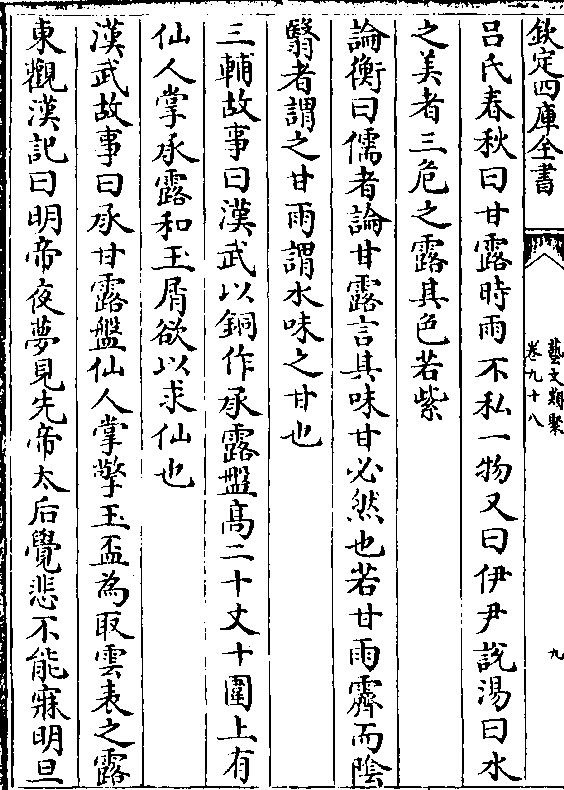 欽定四庫全書
藝文類聚
卷九十八
九
呂氏春秋曰甘露時雨不私一物又曰伊尹說湯曰水
之美者三危之露其色若紫
論衡曰儒者論甘露言其味甘必然也若甘雨霽而陰
翳者謂之甘雨謂水味之甘也
三輔故事曰漢武以銅作承露盤高二十丈十圍上有
仙人掌承露和玉屑欲以求仙也
漢武故事曰承甘露盤仙人掌擎玉盃為取雲表之露
東觀漢記曰明帝夜夢見先帝太后覺悲不能寐明旦